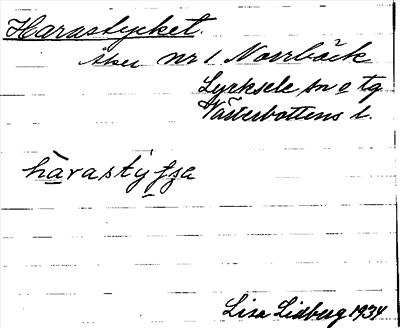 Harastycket.
Åker nr 1 Norrbäck
Lycksele sn o tg.
Västerbottens l.
harastyʃʒa
Lisa Lidberg 1934